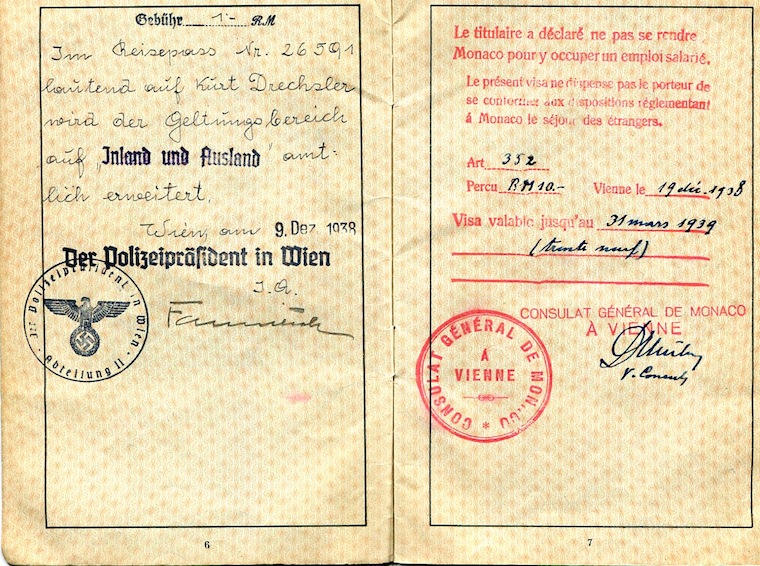 Gebühr 1.- RM
Im Reisepass Nr. 26591
lautend auf Kurt Drechsler
wird der Geltungsbereich
auf „Inland und Ausland“ amt-
lich erweitert.
Wien, am 9. Dez. 1938
Der Polizeipräsident in Wien
I.A.
Der Polizeipräsident in Wien
Abteilung II
6
Le titulaire a déclaré ne pas se rendre
Monaco pour y occuper un emploi salarié.
Le présent visa ne dispense pas le porteur de
se conformer aux dispositions règlementant
à Monaco le séjour des étrangers.
Art 352
Percu RM 10.- Vienne le 19 déc. 1938
Visa valable jusqu'au 31 mars 1939
(trente neuf)
CONSULAT GÉNÉRAL DE MONACO
À VIENNE
V. Consul
CONSULAT GÉNÉRAL DE MONACO
À
VIENNE
7